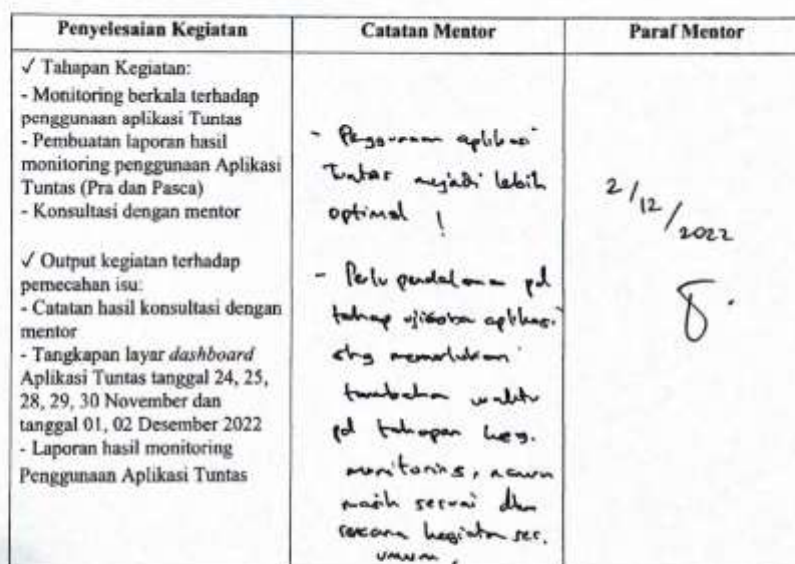 Penyelesaian Kegiatan
Catatan Mentor
Paraf Mentor
√ Tahapan Kegiatan:
- Monitoring berkala terhadap
penggunaan aplikasi Tuntas
- Pembuatan laporan hasil
monitoring penggunaan Aplikasi
Tuntas (Pra dan Pasca)
- Konsultasi dengan mentor
√ Output kegiatan terhadap
pemecahan isu:
- Catatan hasil konsultasi dengan
mentor
- Tangkapan layar dashboard
Aplikasi Tuntas tanggal 24, 25,
28, 29, 30 November dan
tanggal 01, 02 Desember 2022
- Laporan hasil monitoring
Penggunaan Aplikasi Tuntas
- Penggunaan aplikasi
Tuntas menjadi lebih
optimal !
- Perlu pendalaman pd
tahap ujicoba aplikasi
shg memerlukan
tambahan waktu
pd tahapan keg.
monitoring, namun
masih sesuai dgn
rencana kegiatan sec.
umum.
2/12/2022